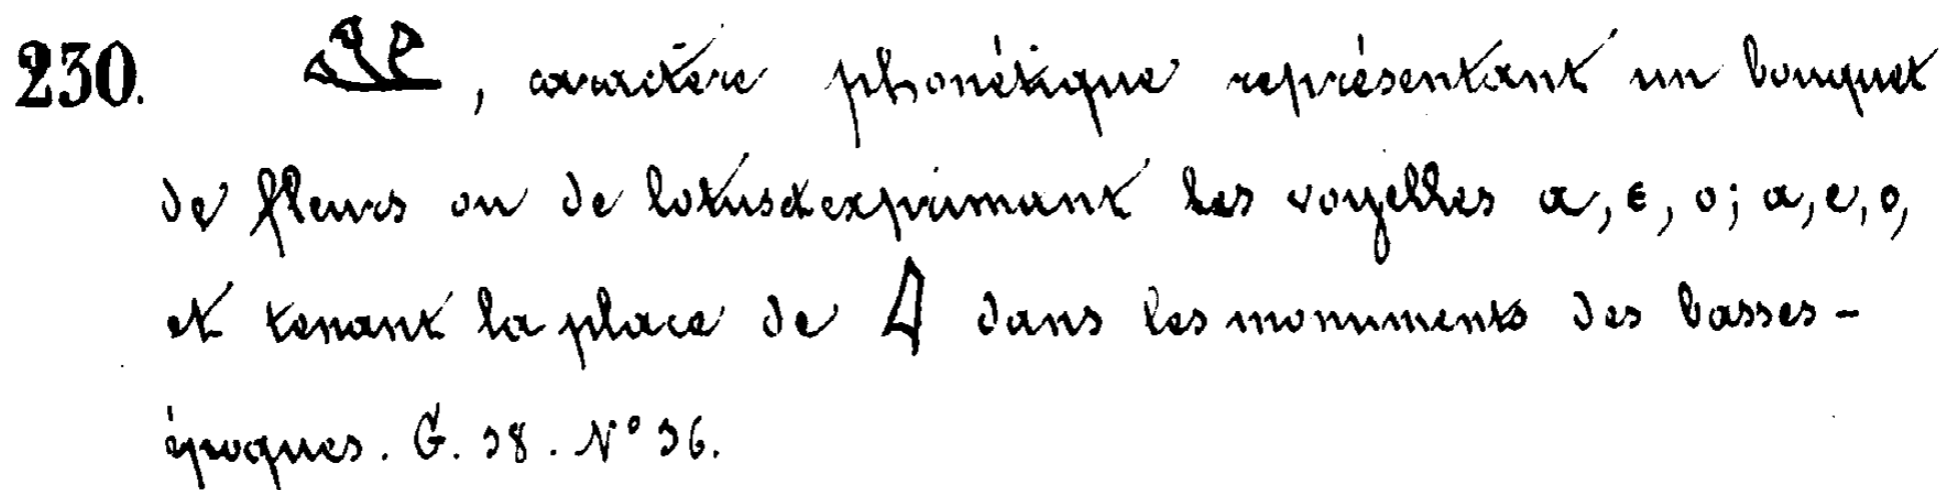 230. 𓇬, caractère phonétique représentant un bouquet
de fleurs ou de lotus et exprimant les voyelles ⲁ, ⲉ, ⲟ; a, e, o,
et tenant la place de 𓇋 dans les monuments des basses-
époques. G. 38. N° 36.